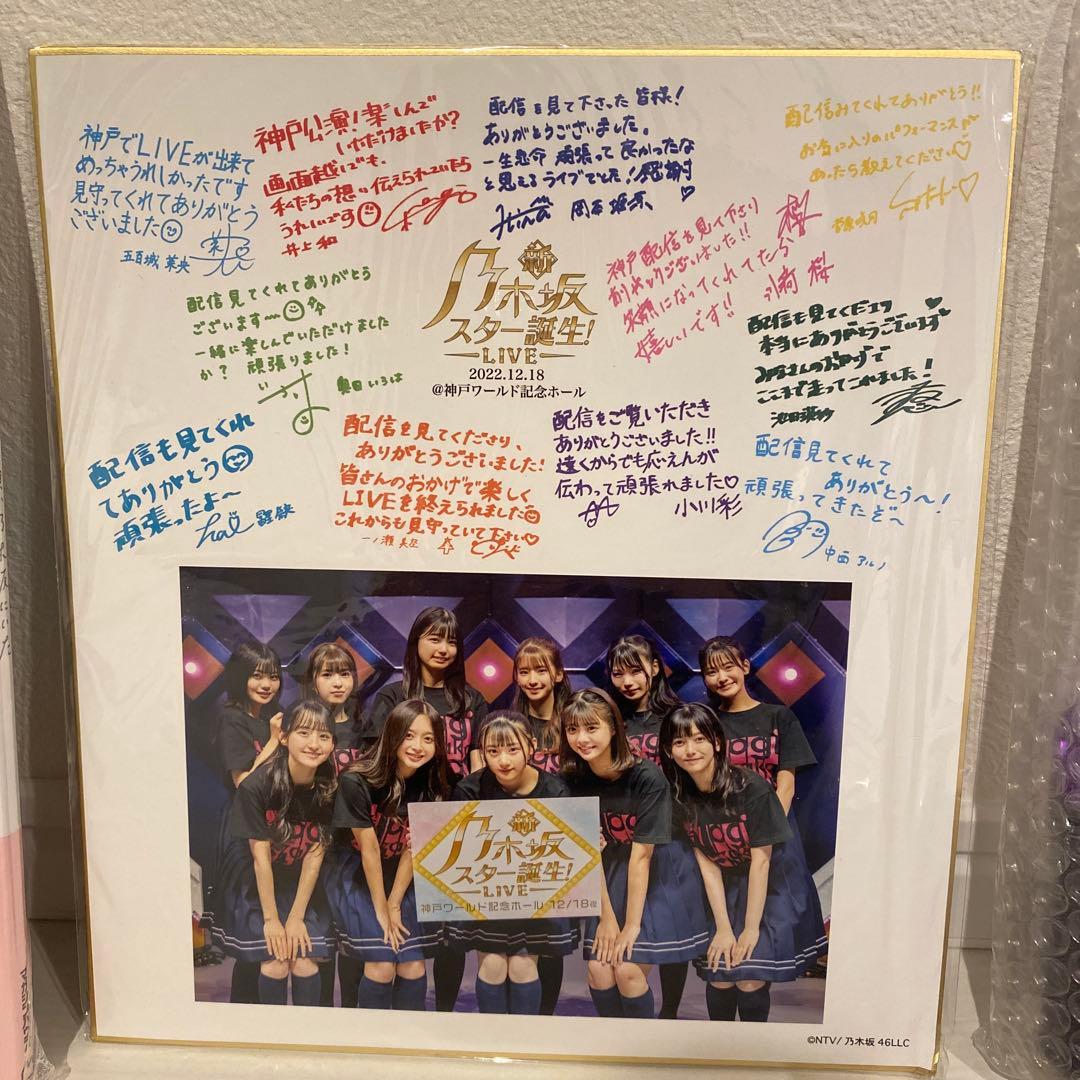 神戸でLIVEが出来て
めっちゃうれしかったです
見守ってくれてありがとう
ございました
五百城 茉央
神戸公演!楽しんで
いただけましたか?
画面越しでも、
私たちの想い伝えられていたら
うれしいです
井上 和
配信を見て下さった皆様!
ありがとうございました。
一生懸命 頑張って良かったな
と見えるライブでした!感謝
岡本姫奈
配信みてくれてありがとう!!
お気に入りのパフォーマンスが
あったら教えてください♡
菅原咲月
配信見てくれてありがとう
ございます〜
一緒に楽しんでいただけました
か? 頑張りました!
奥田 いろは
新
乃木坂
スター誕生!
LIVE
2022.12.18
@神戸ワールド記念ホール
神戸 配信を見て下さり
ありがとうございました!!
笑顔になってくれてたら
嬉しいです!!
桜
川﨑 桜
配信も見てくださり
本当にありがとうございます
みなさんのおかげで
ここまで走ってこれました!
池田瑛紗
配信も見てくれ
てありがとう
頑張ったよ〜
配信を見てくださり、
ありがとうございました!
皆さんのおかげで楽しく
LIVEを終えられました
これからも見守っていて下さい♡
一ノ瀬 美空
配信をご覧いただき
ありがとうございました!!
遠くからでも応えんが
伝わって頑張れました♡
小川彩
配信見てくれて
ありがとう〜!
頑張ってきたぞ〜
中西 アルノ
新
乃木坂
スター誕生!
LIVE
神戸ワールド記念ホール 12/18夜
©NTV/ 乃木坂 46LLC